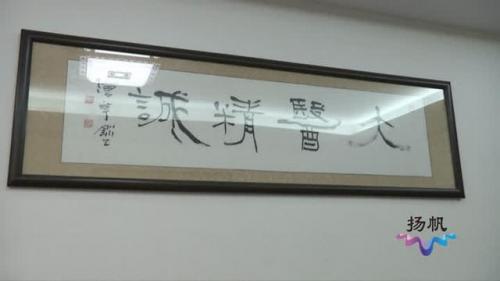 大醫精誠
扬帆